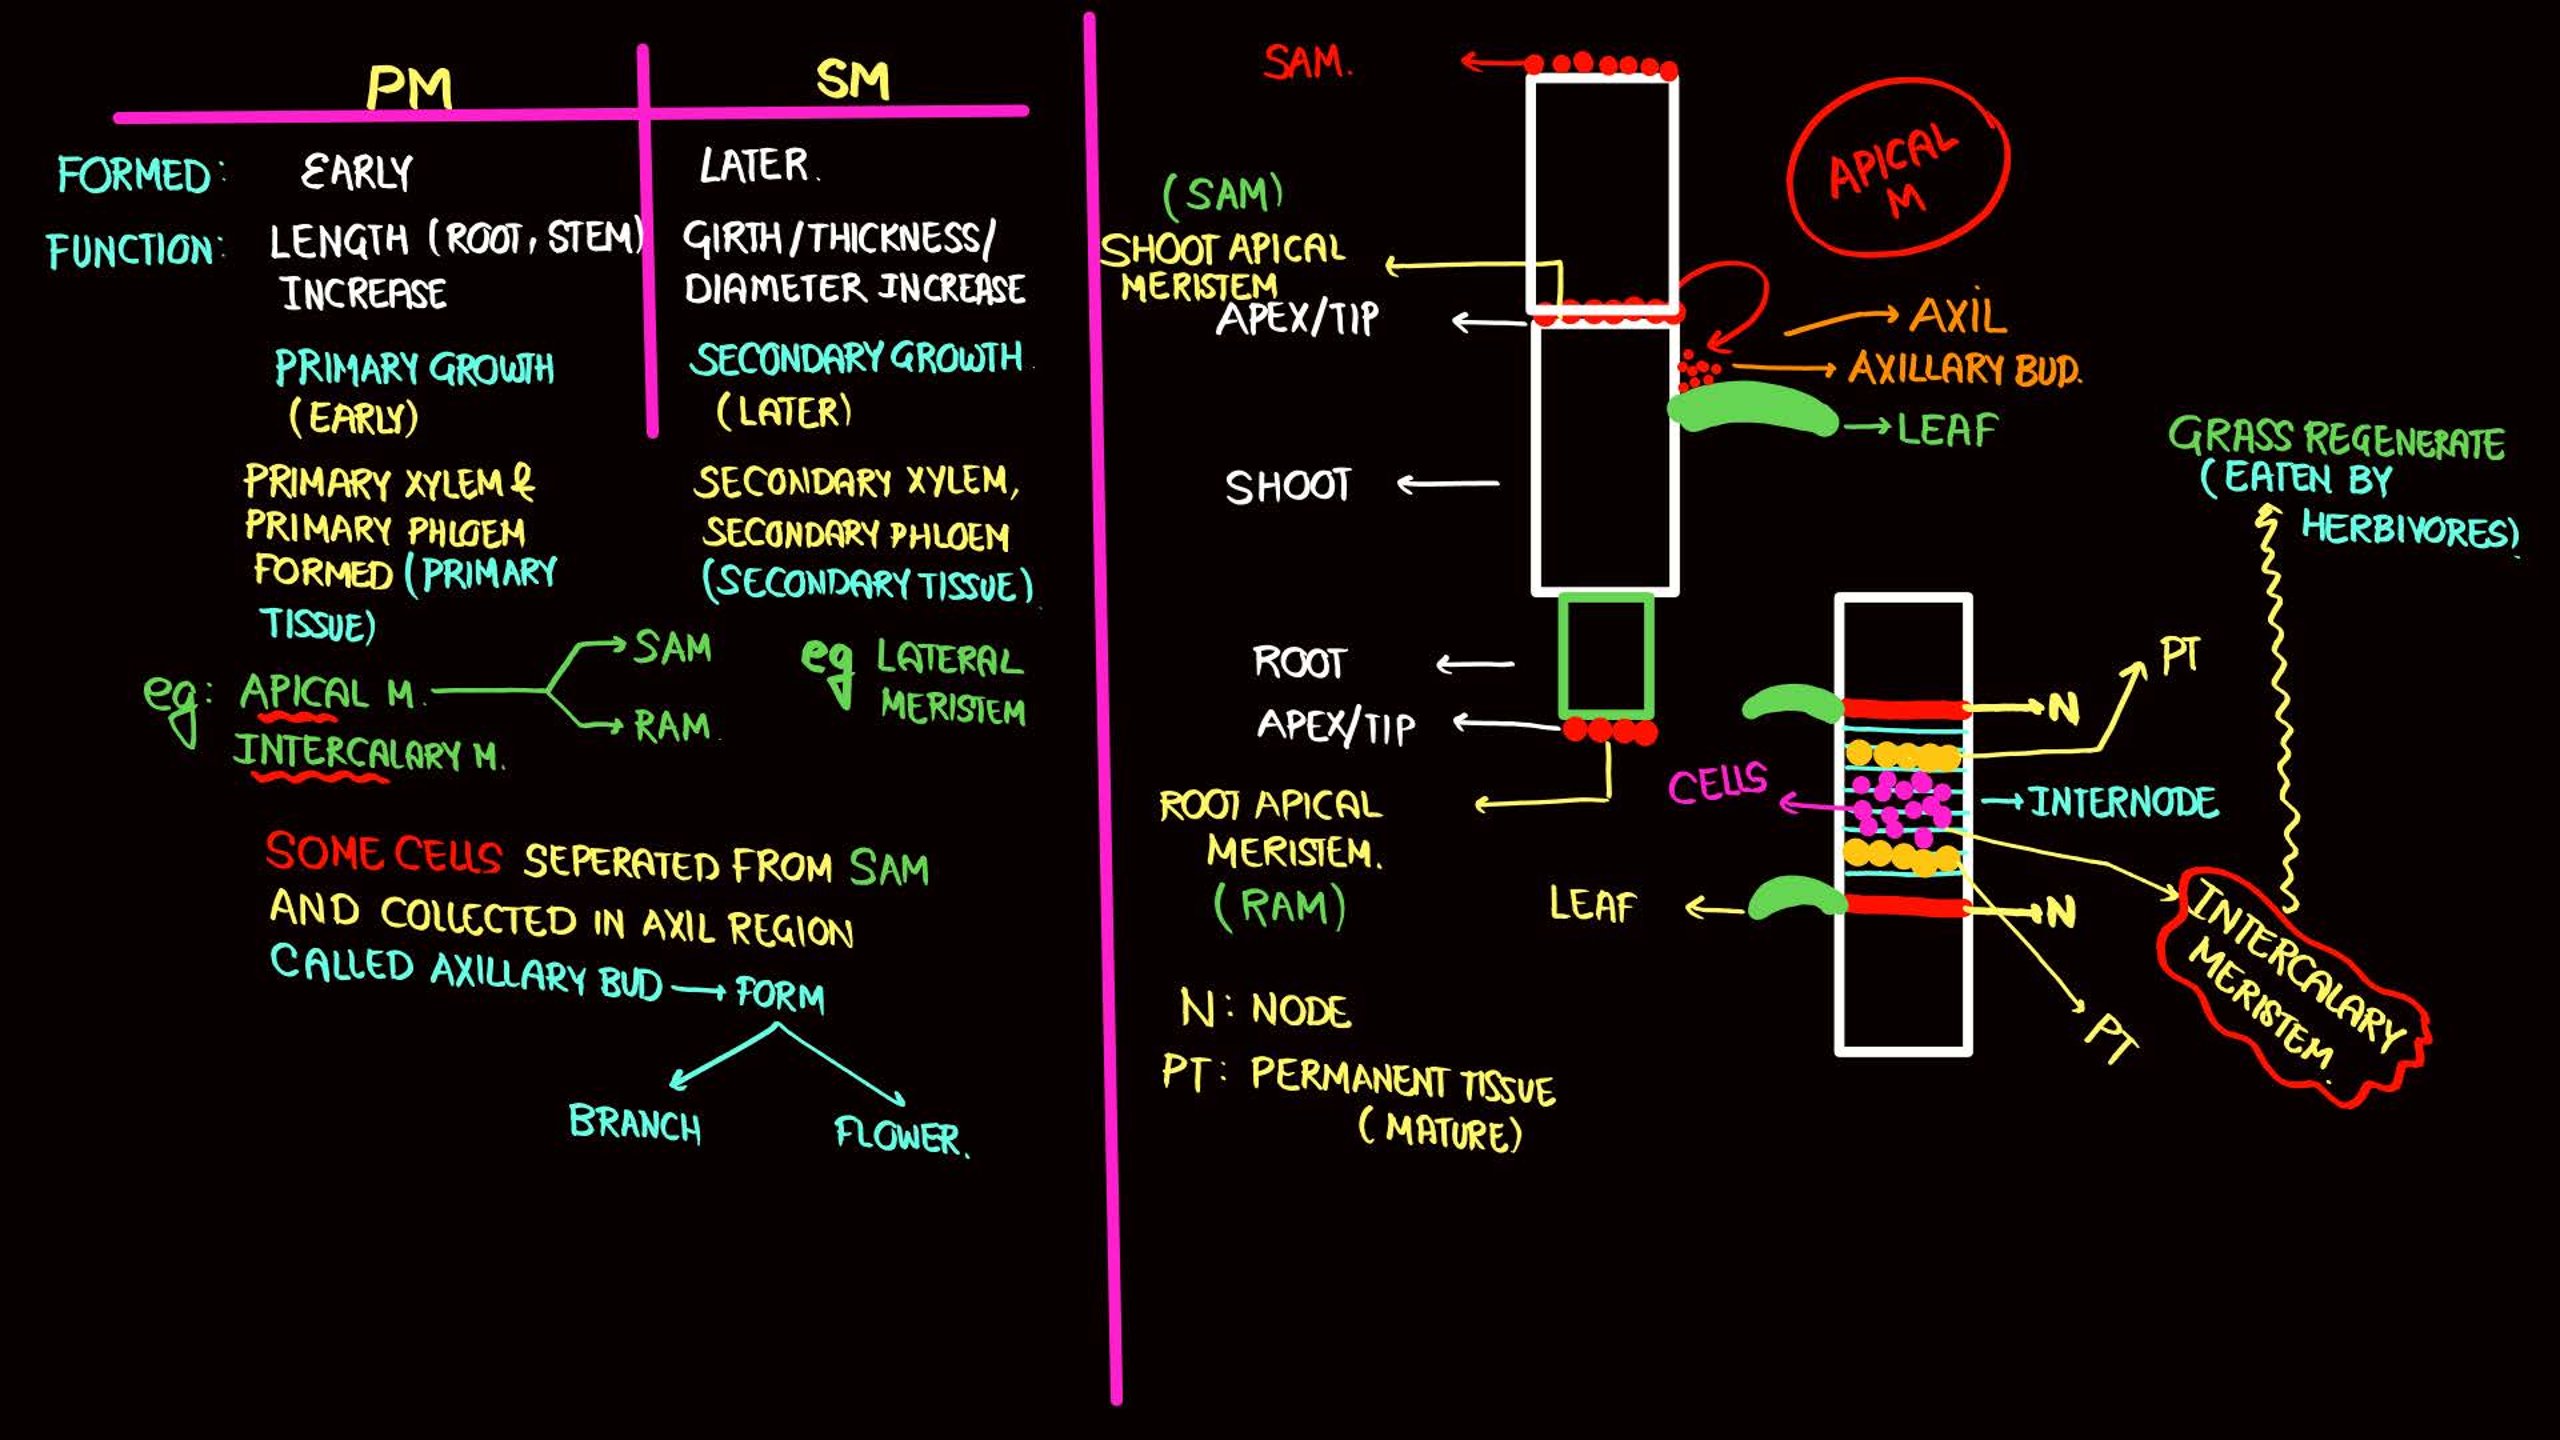 PM
SM
FORMED: EARLY
LATER.
FUNCTION: LENGTH (ROOT, STEM)
INCREASE
GIRTH/THICKNESS/
DIAMETER INCREASE
PRIMARY GROWTH
(EARLY)
SECONDARY GROWTH.
(LATER)
PRIMARY XYLEM &
PRIMARY PHLOEM
FORMED (PRIMARY
TISSUE)
SECONDARY XYLEM,
SECONDARY PHLOEM
(SECONDARY TISSUE).
eg: APICAL M.
SAM
RAM.
INTERCALARY M.
eg LATERAL
MERISTEM
SOME CELLS SEPERATED FROM SAM
AND COLLECTED IN AXIL REGION
CALLED AXILLARY BUD → FORM
BRANCH
FLOWER.
SAM.
APICAL
M
(SAM)
SHOOT APICAL
MERISTEM
APEX/TIP
AXIL
AXILLARY BUD.
LEAF
SHOOT
ROOT
APEX/TIP
ROOT APICAL
MERISTEM.
(RAM)
N: NODE
PT: PERMANENT TISSUE
(MATURE)
GRASS REGENERATE
(EATEN BY
HERBIVORES).
PT
N
CELLS
INTERNODE
LEAF
N
PT
INTERCALARY
MERISTEM.